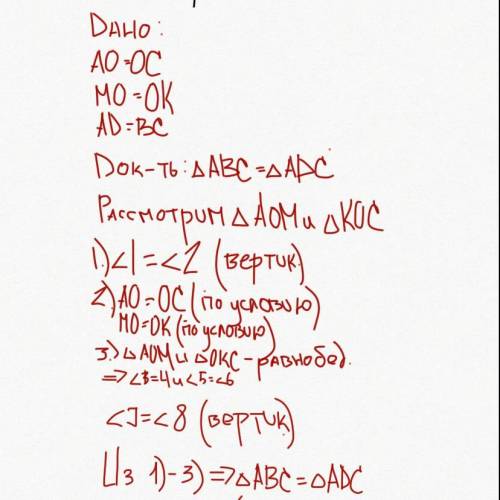 Дано:
АО=ОС
МО=ОК
AD=BC
Док-ть: △ABC=△ADC
Рассмотрим △AOM и △KOC
1.)<1=<2 (вертик)
2) АО=ОС (по условию)
МО=ОК (по условию)
3.) △AOM и △OKC-равнобед.
=><3=4 и <5=<6
<7=<8 (вертик)
Из 1)-3)=>△ABC=△ADC